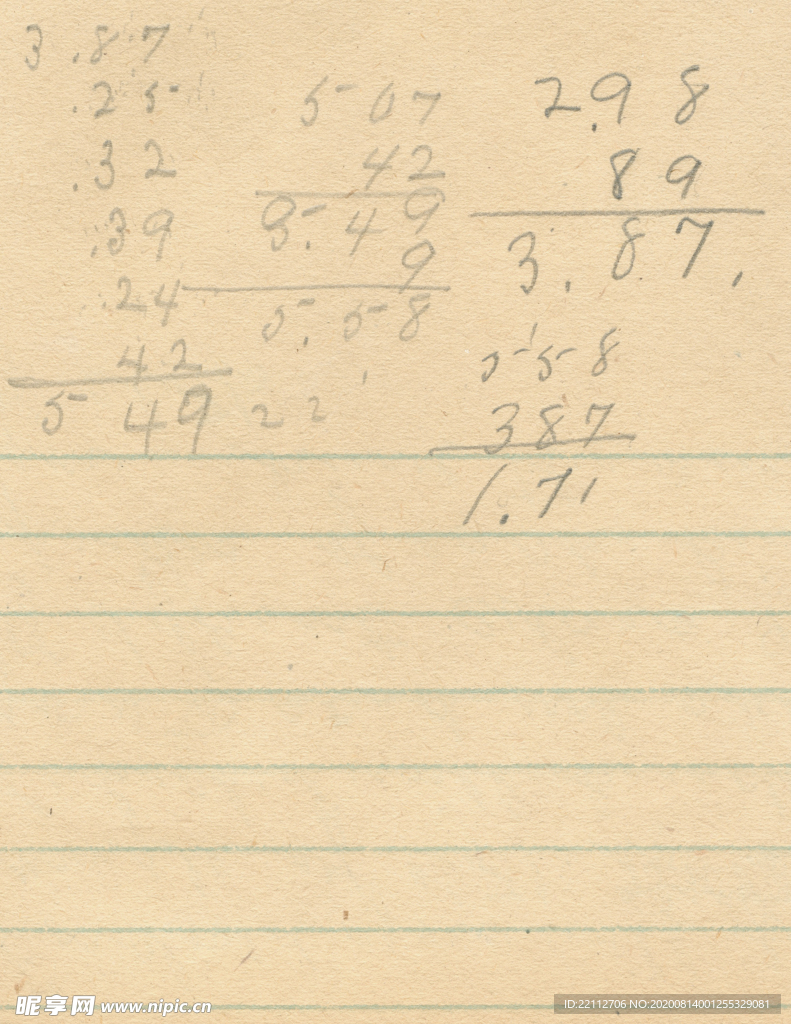 3.87
.25
.32
.39
.24
42
5 49
22
5 07
42
5.49
9
5.58
2.98
89
3.87.
5 58
387
1.71
昵享网 www.nipic.cn
ID:22112706 NO:20200814001255329081